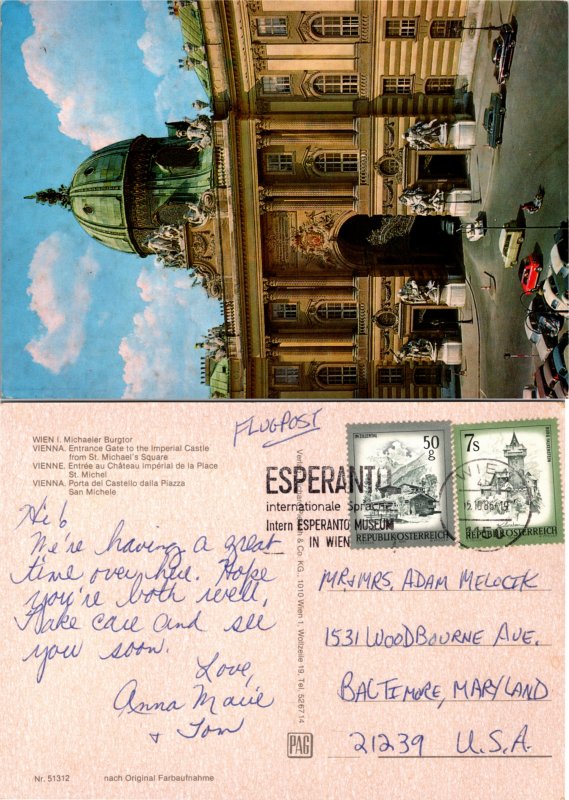 WIEN I. Michaeler Burgtor
VIENNA. Entrance Gate to the Imperial Castle
from St. Michael's Square
VIENNE. Entrée au Château impérial de la Place
St. Michel
VIENNA. Porta del Castello dalla Piazza
San Michele
FLUGPOST
Hi!
We're having a great
time over here. Hope
you're both well,
Take care and see
you soon.
Love,
Anna Marie
& Tom
ESPERANTO
internationale Sprache
Intern ESPERANTO MUSEUM
IN WIEN
50
g
REPUBLIK ÖSTERREICH
7s
REPUBLIK ÖSTERREICH
WIEN
15.10.86
& Co. KG., 1010 Wien 1, Wollzeile 19, Tel. 526714
MR & MRS. ADAM MELOCIK
1531 WOODBOURNE AVE.
BALTIMORE, MARYLAND
21239 U.S.A.
PAG
Nr. 51312
nach Original Farbaufnahme